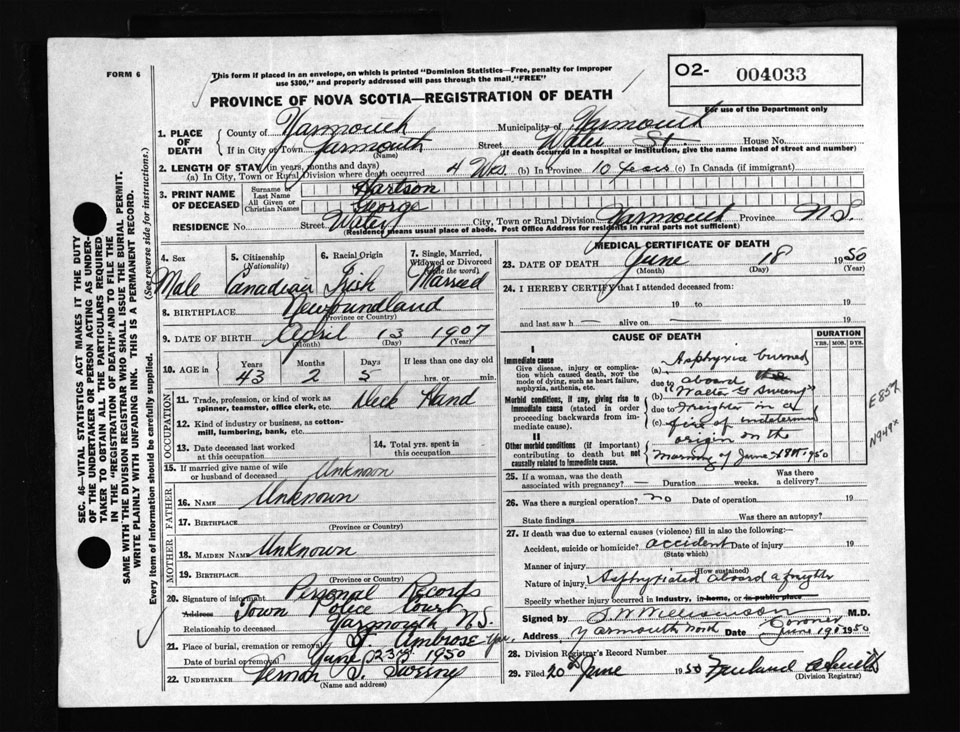 FORM 6
This form if placed in an envelope, on which is printed "Dominion Statistics—Free, penalty for improper
use $300," and properly addressed will pass through the mail "FREE"
O2- 004033
For use of the Department only
PROVINCE OF NOVA SCOTIA—REGISTRATION OF DEATH
1. PLACE OF DEATH
County of Yarmouth Municipality of Yarmouth
If in City or Town Yarmouth Street Water St. House No.
(Name) (If death occurred in a hospital or institution, give the name instead of street and number)
2. LENGTH OF STAY (in years, months and days)
(a) In City, Town or Rural Division where death occurred 4 Wks. (b) In Province 10 years (c) In Canada (if immigrant)
3. PRINT NAME OF DECEASED
Surname or Last Name Hartson
All Given or Christian Names George
RESIDENCE No. Street Water City, Town or Rural Division Yarmouth Province N.S.
(Residence means usual place of abode. Post Office Address for residents in rural parts not sufficient)
4. Sex Male
5. Citizenship (Nationality) Canadian
6. Racial Origin Irish
7. Single, Married, Widowed or Divorced (Write the word) Married
8. BIRTHPLACE Newfoundland
(Province or Country)
9. DATE OF BIRTH April 13 1907
(Month) (Day) (Year)
10. AGE in Years Months Days If less than one day old
43 2 5 hrs. or min.
OCCUPATION
11. Trade, profession, or kind of work as
spinner, teamster, office clerk, etc. Deck Hand
12. Kind of industry or business, as cotton-
mill, lumbering, bank, etc.
13. Date deceased last worked
at this occupation
14. Total yrs. spent in
this occupation
15. If married give name of wife
or husband of deceased Unknown
FATHER
16. NAME Unknown
17. BIRTHPLACE
(Province or Country)
MOTHER
18. MAIDEN NAME Unknown
19. BIRTHPLACE
(Province or Country)
20. Signature of informant Personal Records
Address Town Police Court
Relationship to deceased Yarmouth N.S.
21. Place of burial, cremation or removal St. Ambrose Yar.
Date of burial or removal June 23rd 1950
22. UNDERTAKER Vernon S. Sweeny
(Name and address)
MEDICAL CERTIFICATE OF DEATH
23. DATE OF DEATH June 18 1950
(Month) (Day) (Year)
24. I HEREBY CERTIFY that I attended deceased from:
19 to 19
and last saw h — alive on — 19
CAUSE OF DEATH
DURATION
YRS. MOS. DYS.
I
Immediate cause
Give disease, injury or compli-
cation which caused death, NOT the
mode of dying, such as heart failure,
asphyxia, asthenia, etc.
Morbid conditions, if any, giving rise to
immediate cause (stated in order
proceeding backwards from im-
mediate cause).
II
Other morbid conditions (if important)
contributing to death but not
causally related to immediate cause.
(a) Asphyxia burned
due to aboard the
(b) "Walter G Sweeny"
due to freighter in a
(c) fire of undetermined
origin on the
Morning of June 18th 1950
E857
N949x
25. If a woman, was the death
associated with pregnancy? — Duration weeks. Was there
a delivery?
26. Was there a surgical operation? no Date of operation 19
State findings Was there an autopsy?
27. If death was due to external causes (violence) fill in also the following:—
Accident, suicide or homicide? accident Date of injury 19
(State which)
Manner of injury
(How sustained)
Nature of injury Asphyxiated aboard a freighter
Specify whether injury occurred in industry, in home, or in public place
Signed by S.W. Williamson M.D.
Coroner
Address Yarmouth North Date June 19th 1950
28. Division Registrar's Record Number
29. Filed 20th June 1950
(Division Registrar)
SEC. 46—VITAL STATISTICS ACT MAKES IT THE DUTY
OF THE UNDERTAKER OR PERSON ACTING AS UNDER-
TAKER TO OBTAIN ALL THE PARTICULARS REQUIRED
IN THE "REGISTRATION OF DEATH" AND TO FILE THE
SAME WITH THE DIVISION REGISTRAR WHO SHALL ISSUE THE BURIAL PERMIT.
WRITE PLAINLY WITH UNFADING INK. THIS IS A PERMANENT RECORD.
Every item of information should be carefully supplied. (See reverse side for instructions.)